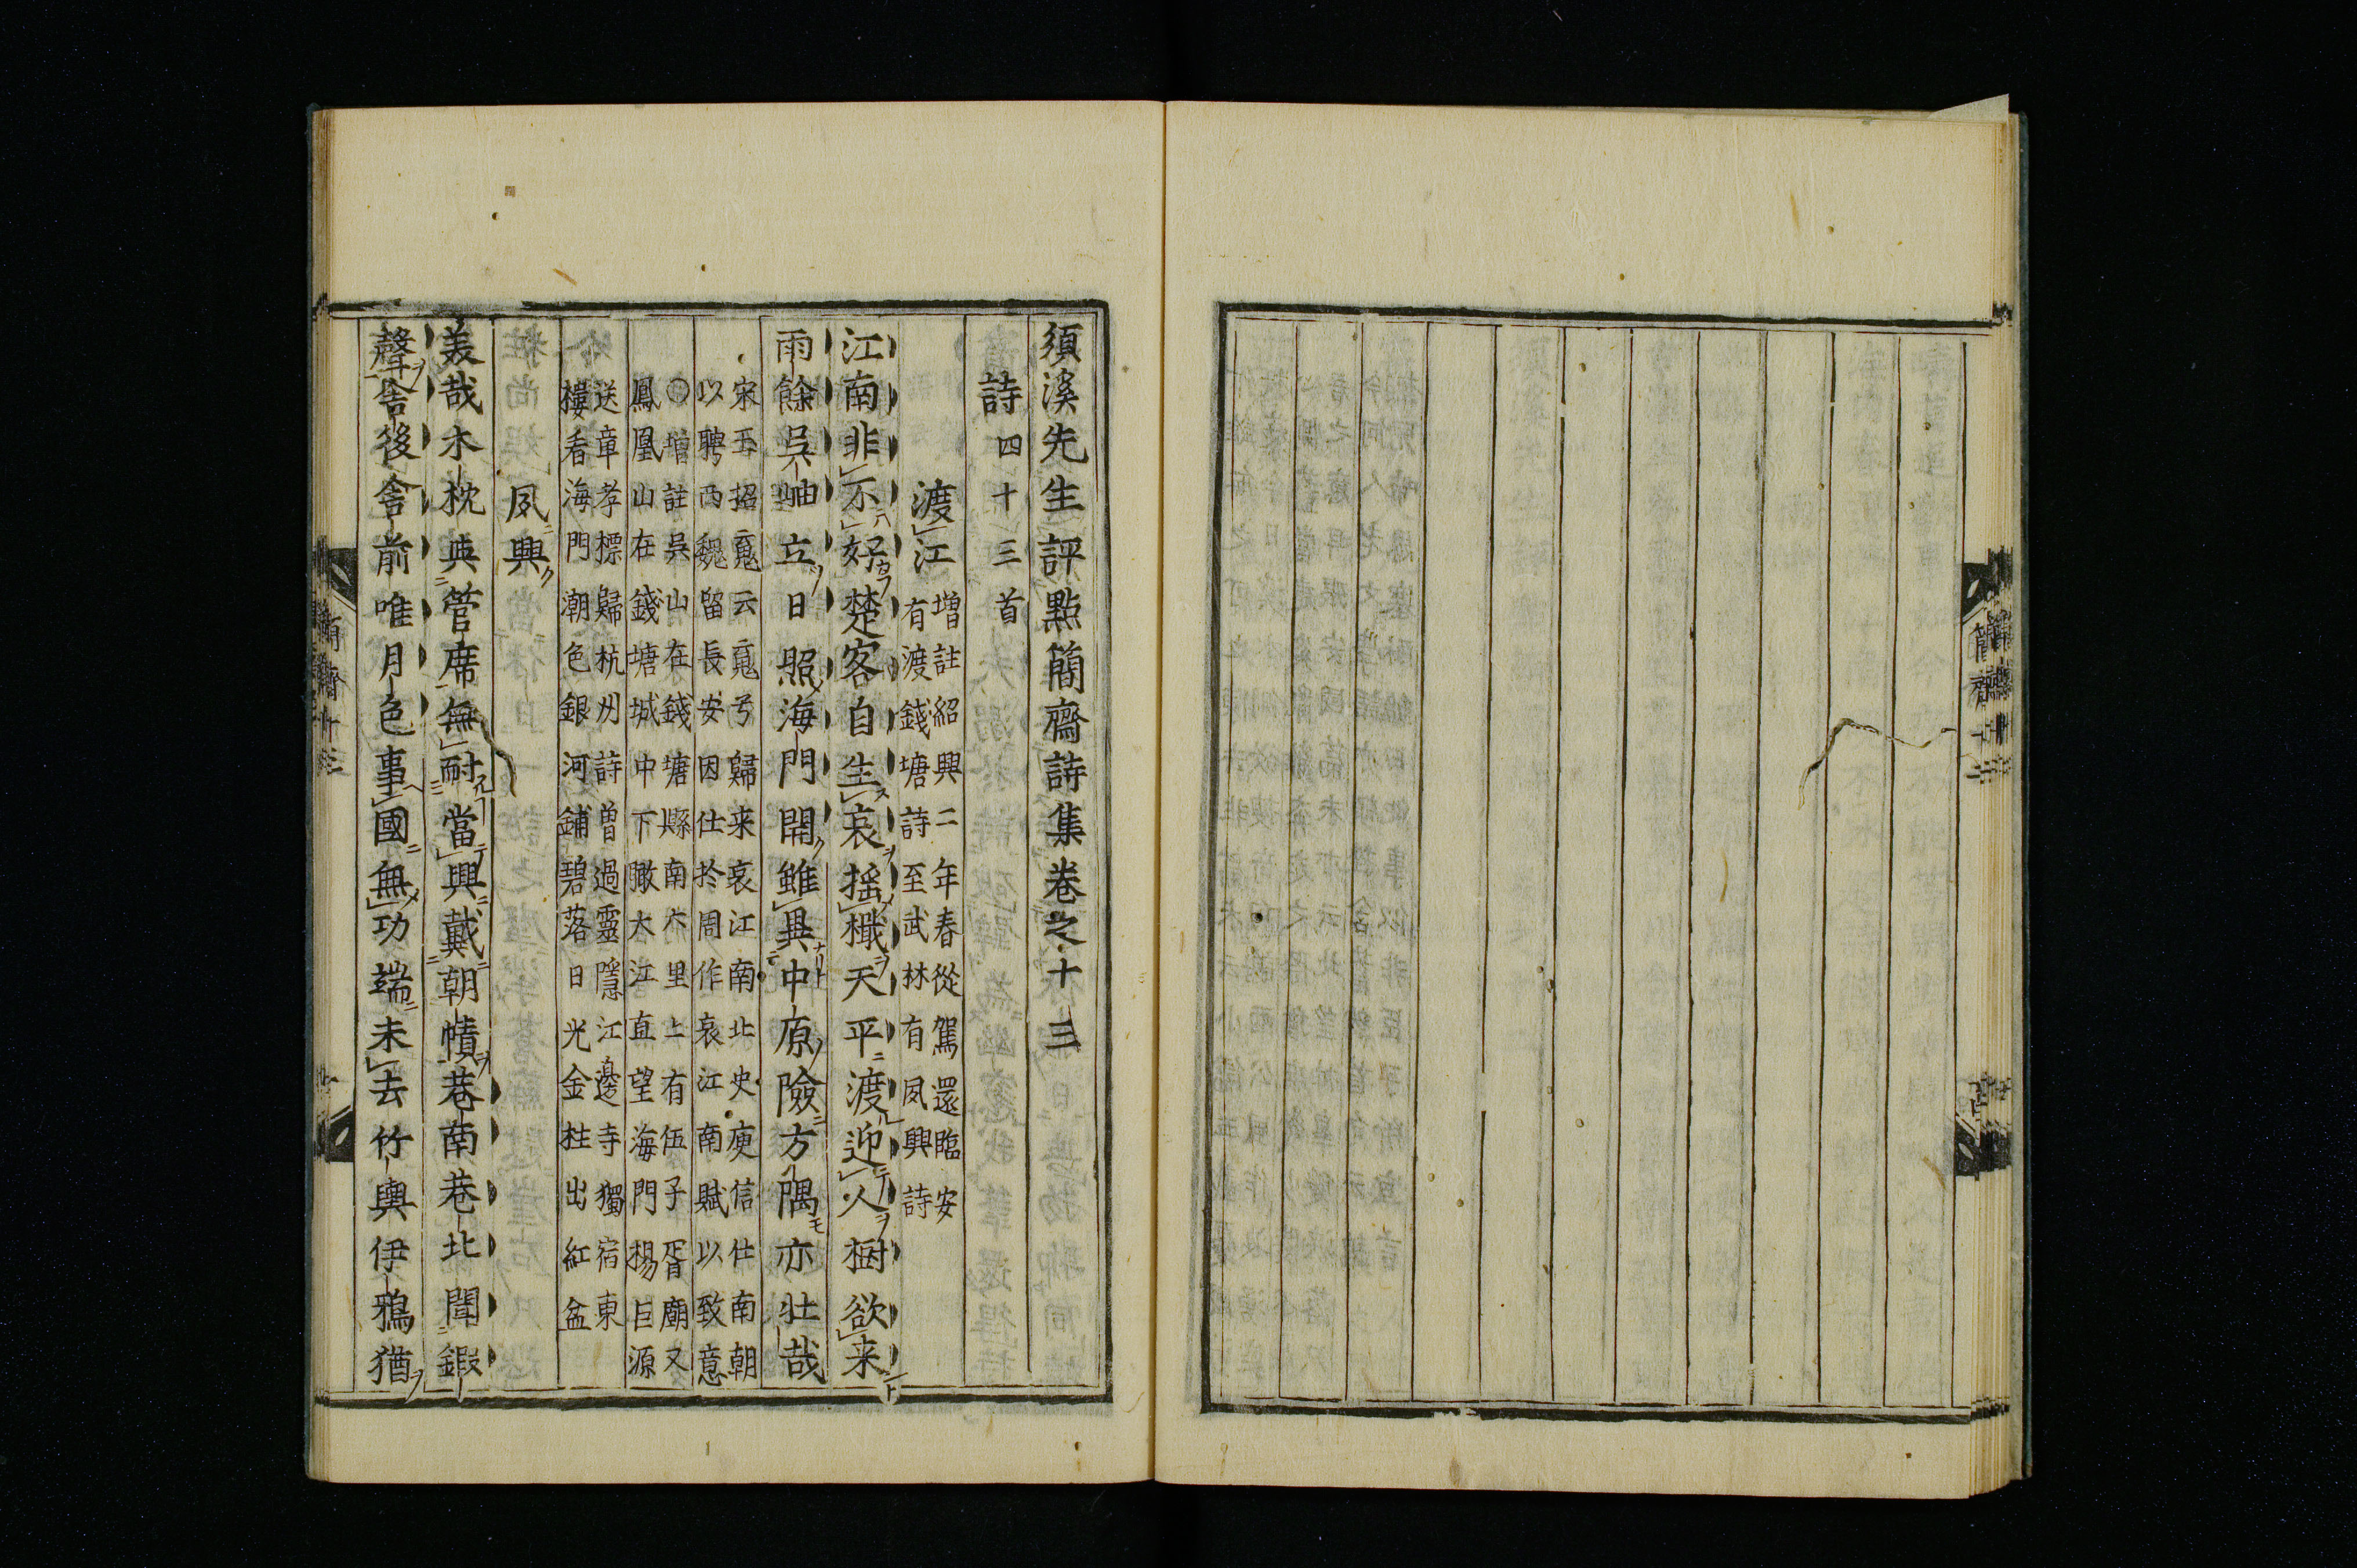 須溪先生評點簡齋詩集卷之十三
詩四十三首
渡江
増註紹興二年春從駕還臨安
有渡錢塘詩至武林有夙興詩
江南非不好楚客自生哀揺檝天平渡迎人樹欲来
雨餘吳岫立日照海門開雖異中原險方隅亦壮哉
宋玉招䰟云䰟兮歸来哀江南北史庾信仕南朝
以聘西魏留長安因仕扵周作哀江南賦以致意
○増註吳山在錢塘縣南六里上有伍子胥廟又
鳳凰山在錢塘城中下瞰大江直望海門楊巨源
送章孝標歸杭州詩曽過靈隱江邊寺獨宿東
樓看海門潮色銀河鋪碧落日光金柱出紅盆
夙興
美哉木枕與菅席無耐當興戴朝幘巷南巷北聞鍜
聲舎後舎前唯月色事國無功端未去竹輿伊鴉猶
簡齋十三